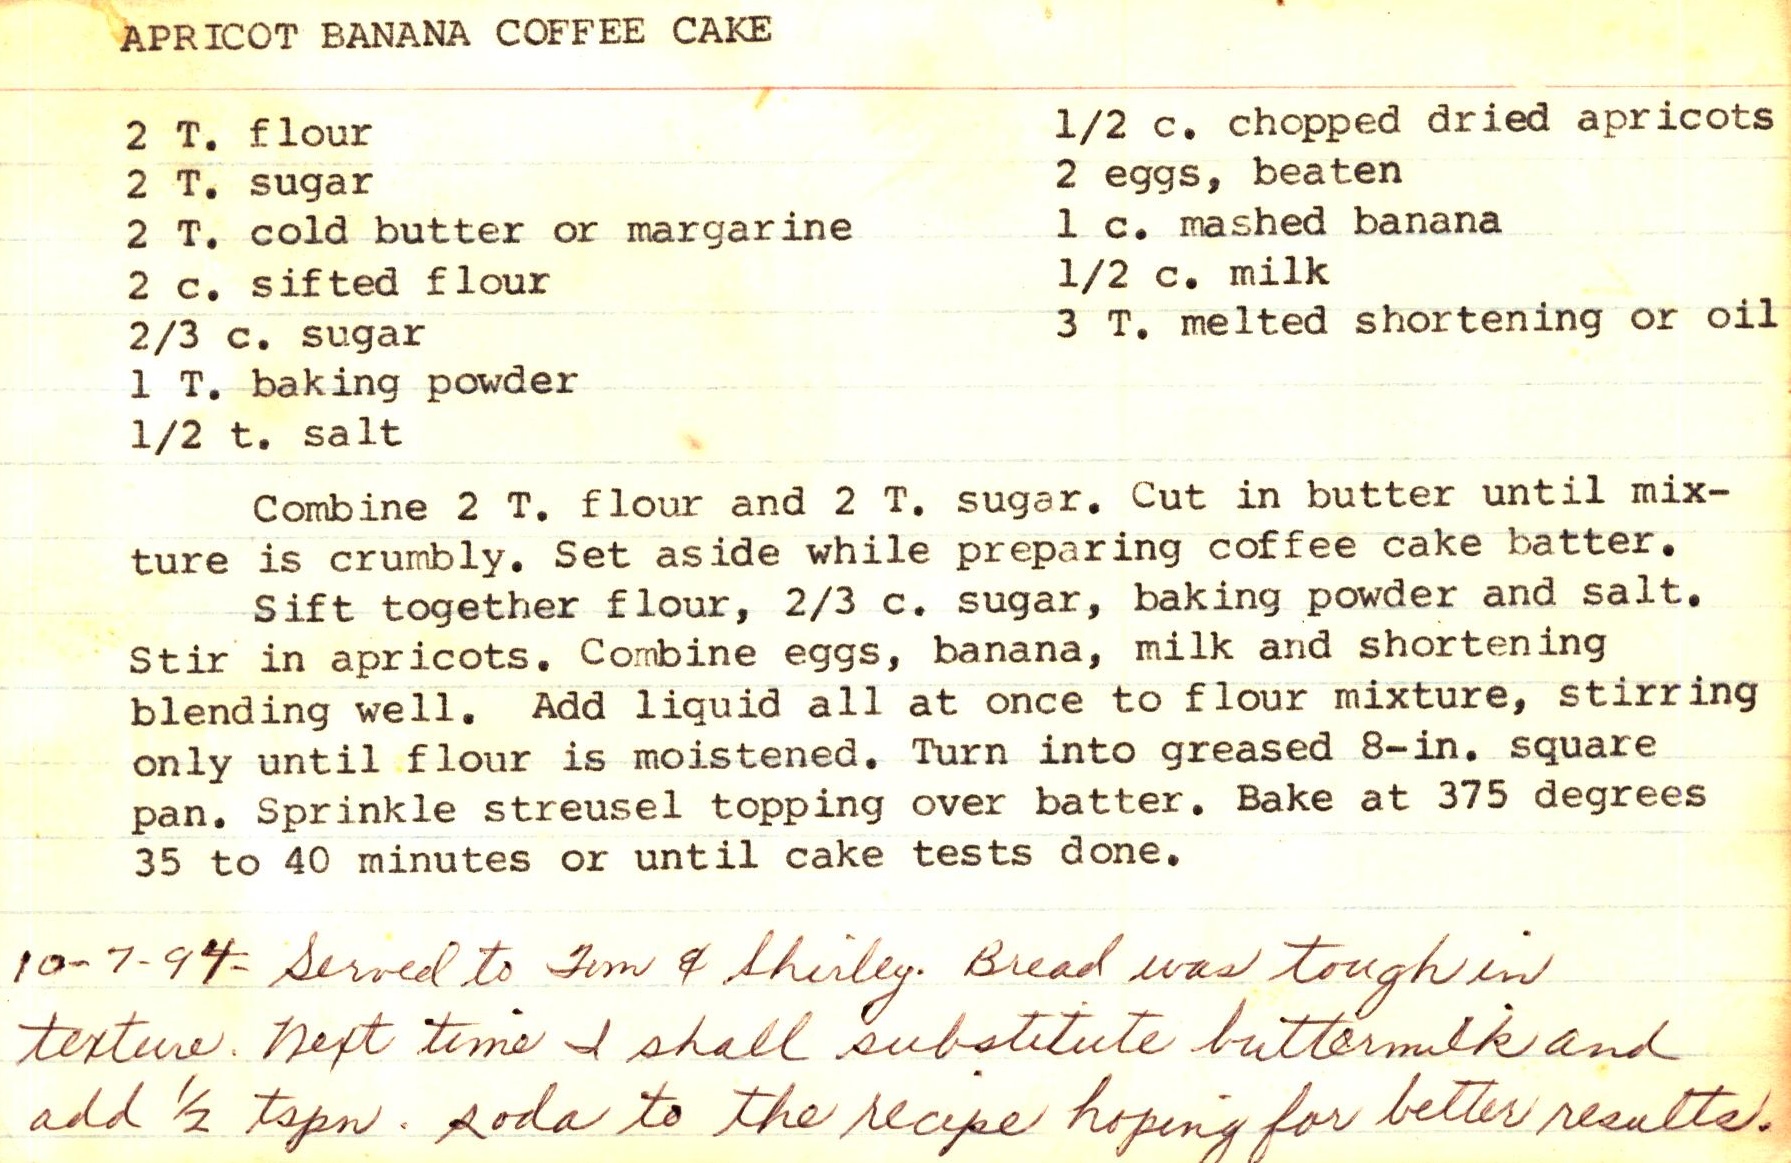 APRICOT BANANA COFFEE CAKE
2 T. flour
2 T. sugar
2 T. cold butter or margarine
2 c. sifted flour
2/3 c. sugar
1 T. baking powder
1/2 t. salt
1/2 c. chopped dried apricots
2 eggs, beaten
1 c. mashed banana
1/2 c. milk
3 T. melted shortening or oil
Combine 2 T. flour and 2 T. sugar. Cut in butter until mix-
ture is crumbly. Set aside while preparing coffee cake batter.
Sift together flour, 2/3 c. sugar, baking powder and salt.
Stir in apricots. Combine eggs, banana, milk and shortening
blending well. Add liquid all at once to flour mixture, stirring
only until flour is moistened. Turn into greased 8-in. square
pan. Sprinkle streusel topping over batter. Bake at 375 degrees
35 to 40 minutes or until cake tests done.
10-7-94- Served to Tom & Shirley. Bread was tough in
texture. Next time I shall substitute buttermilk and
add 1/2 tspn. soda to the recipe hoping for better results.